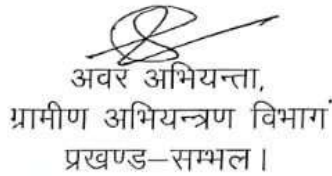 अवर अभियन्ता,
ग्रामीण अभियन्त्रण विभाग
प्रखण्ड–सम्भल।